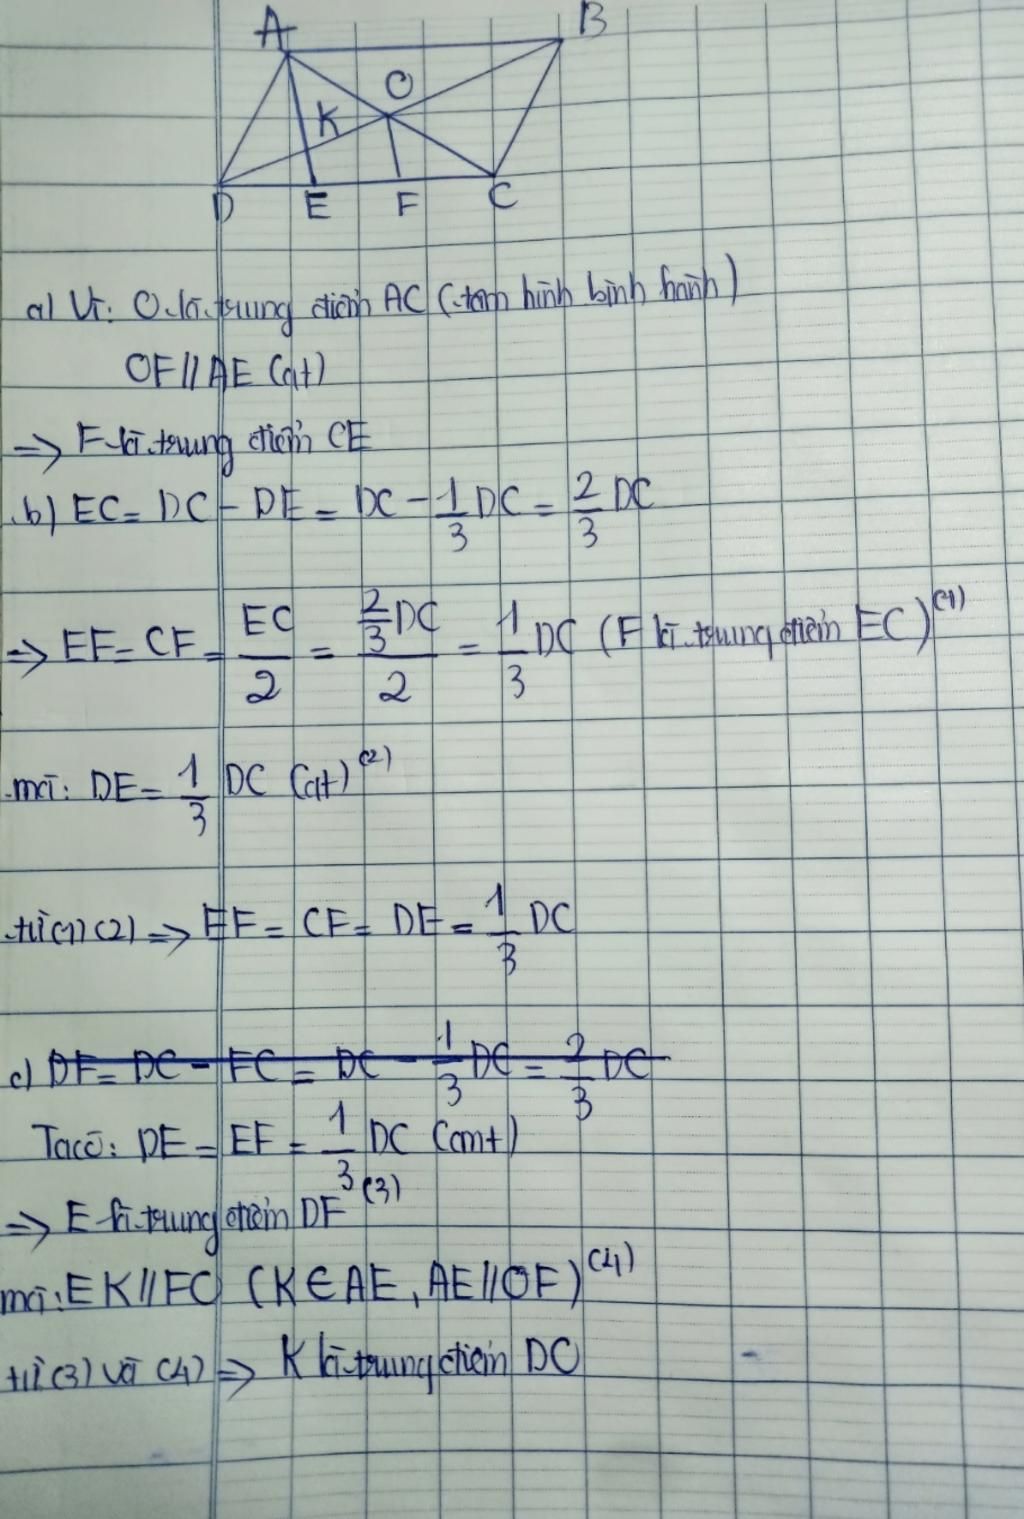 A
B
O
K
D
E
F
C
a) Vì: O là trung điểm AC (tam hình bình hành)
OF // AE (gt)
=> F là trung điểm CE
b) EC = DC - DE = DC - 1/3 DC = 2/3 DC
=> EF = CF = EC/2 = (2/3 DC)/2 = 1/3 DC (F là trung điểm EC) (1)
mà: DE = 1/3 DC (gt) (2)
từ (1) (2) => EF = CF = DE = 1/3 DC
c) DF = DC - FC = DC - 1/3 DC = 2/3 DC
Ta có: DE = EF = 1/3 DC (cmt)
=> E là trung điểm DF (3)
mà: EK // FO (K ∈ AE, AE // OF) (4)
từ (3) và (4) => K là trung điểm DO